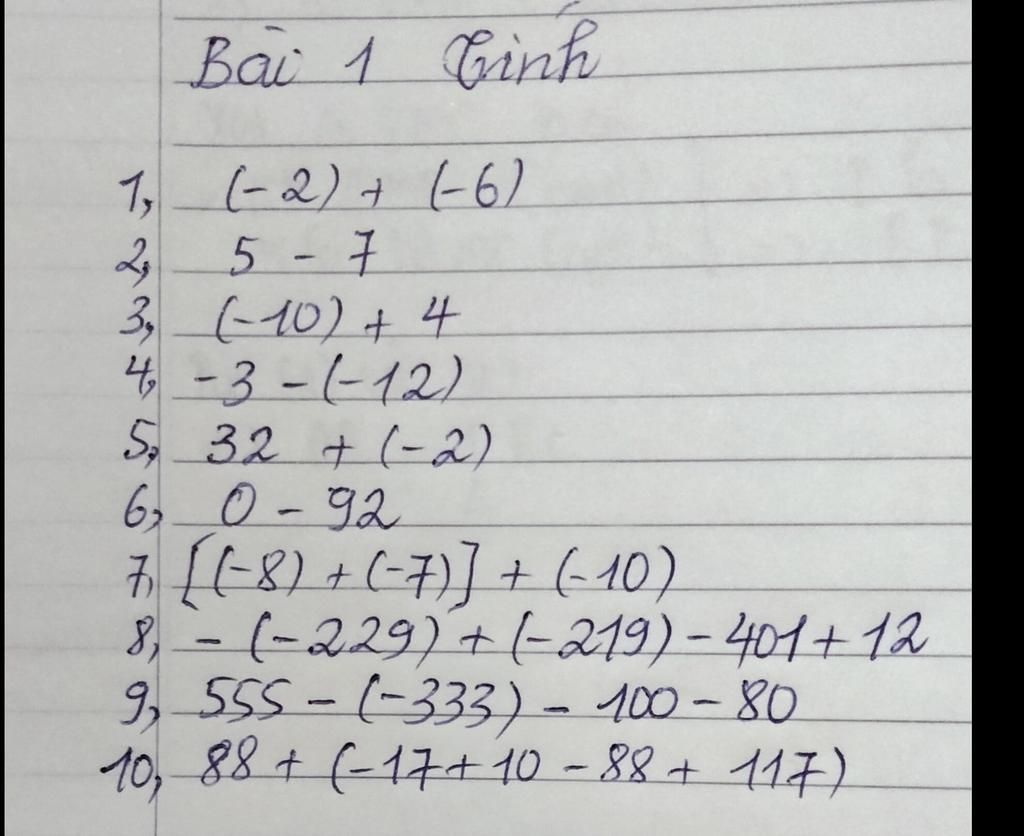 Bài 1 Tính
1, (-2) + (-6)
2, 5 - 7
3, (-10) + 4
4, -3 - (-12)
5, 32 + (-2)
6, 0 - 92
7, [(-8) + (-7)] + (-10)
8, - (-229) + (-219) - 401 + 12
9, 555 - (-333) - 100 - 80
10, 88 + (-17 + 10 - 88 + 117)